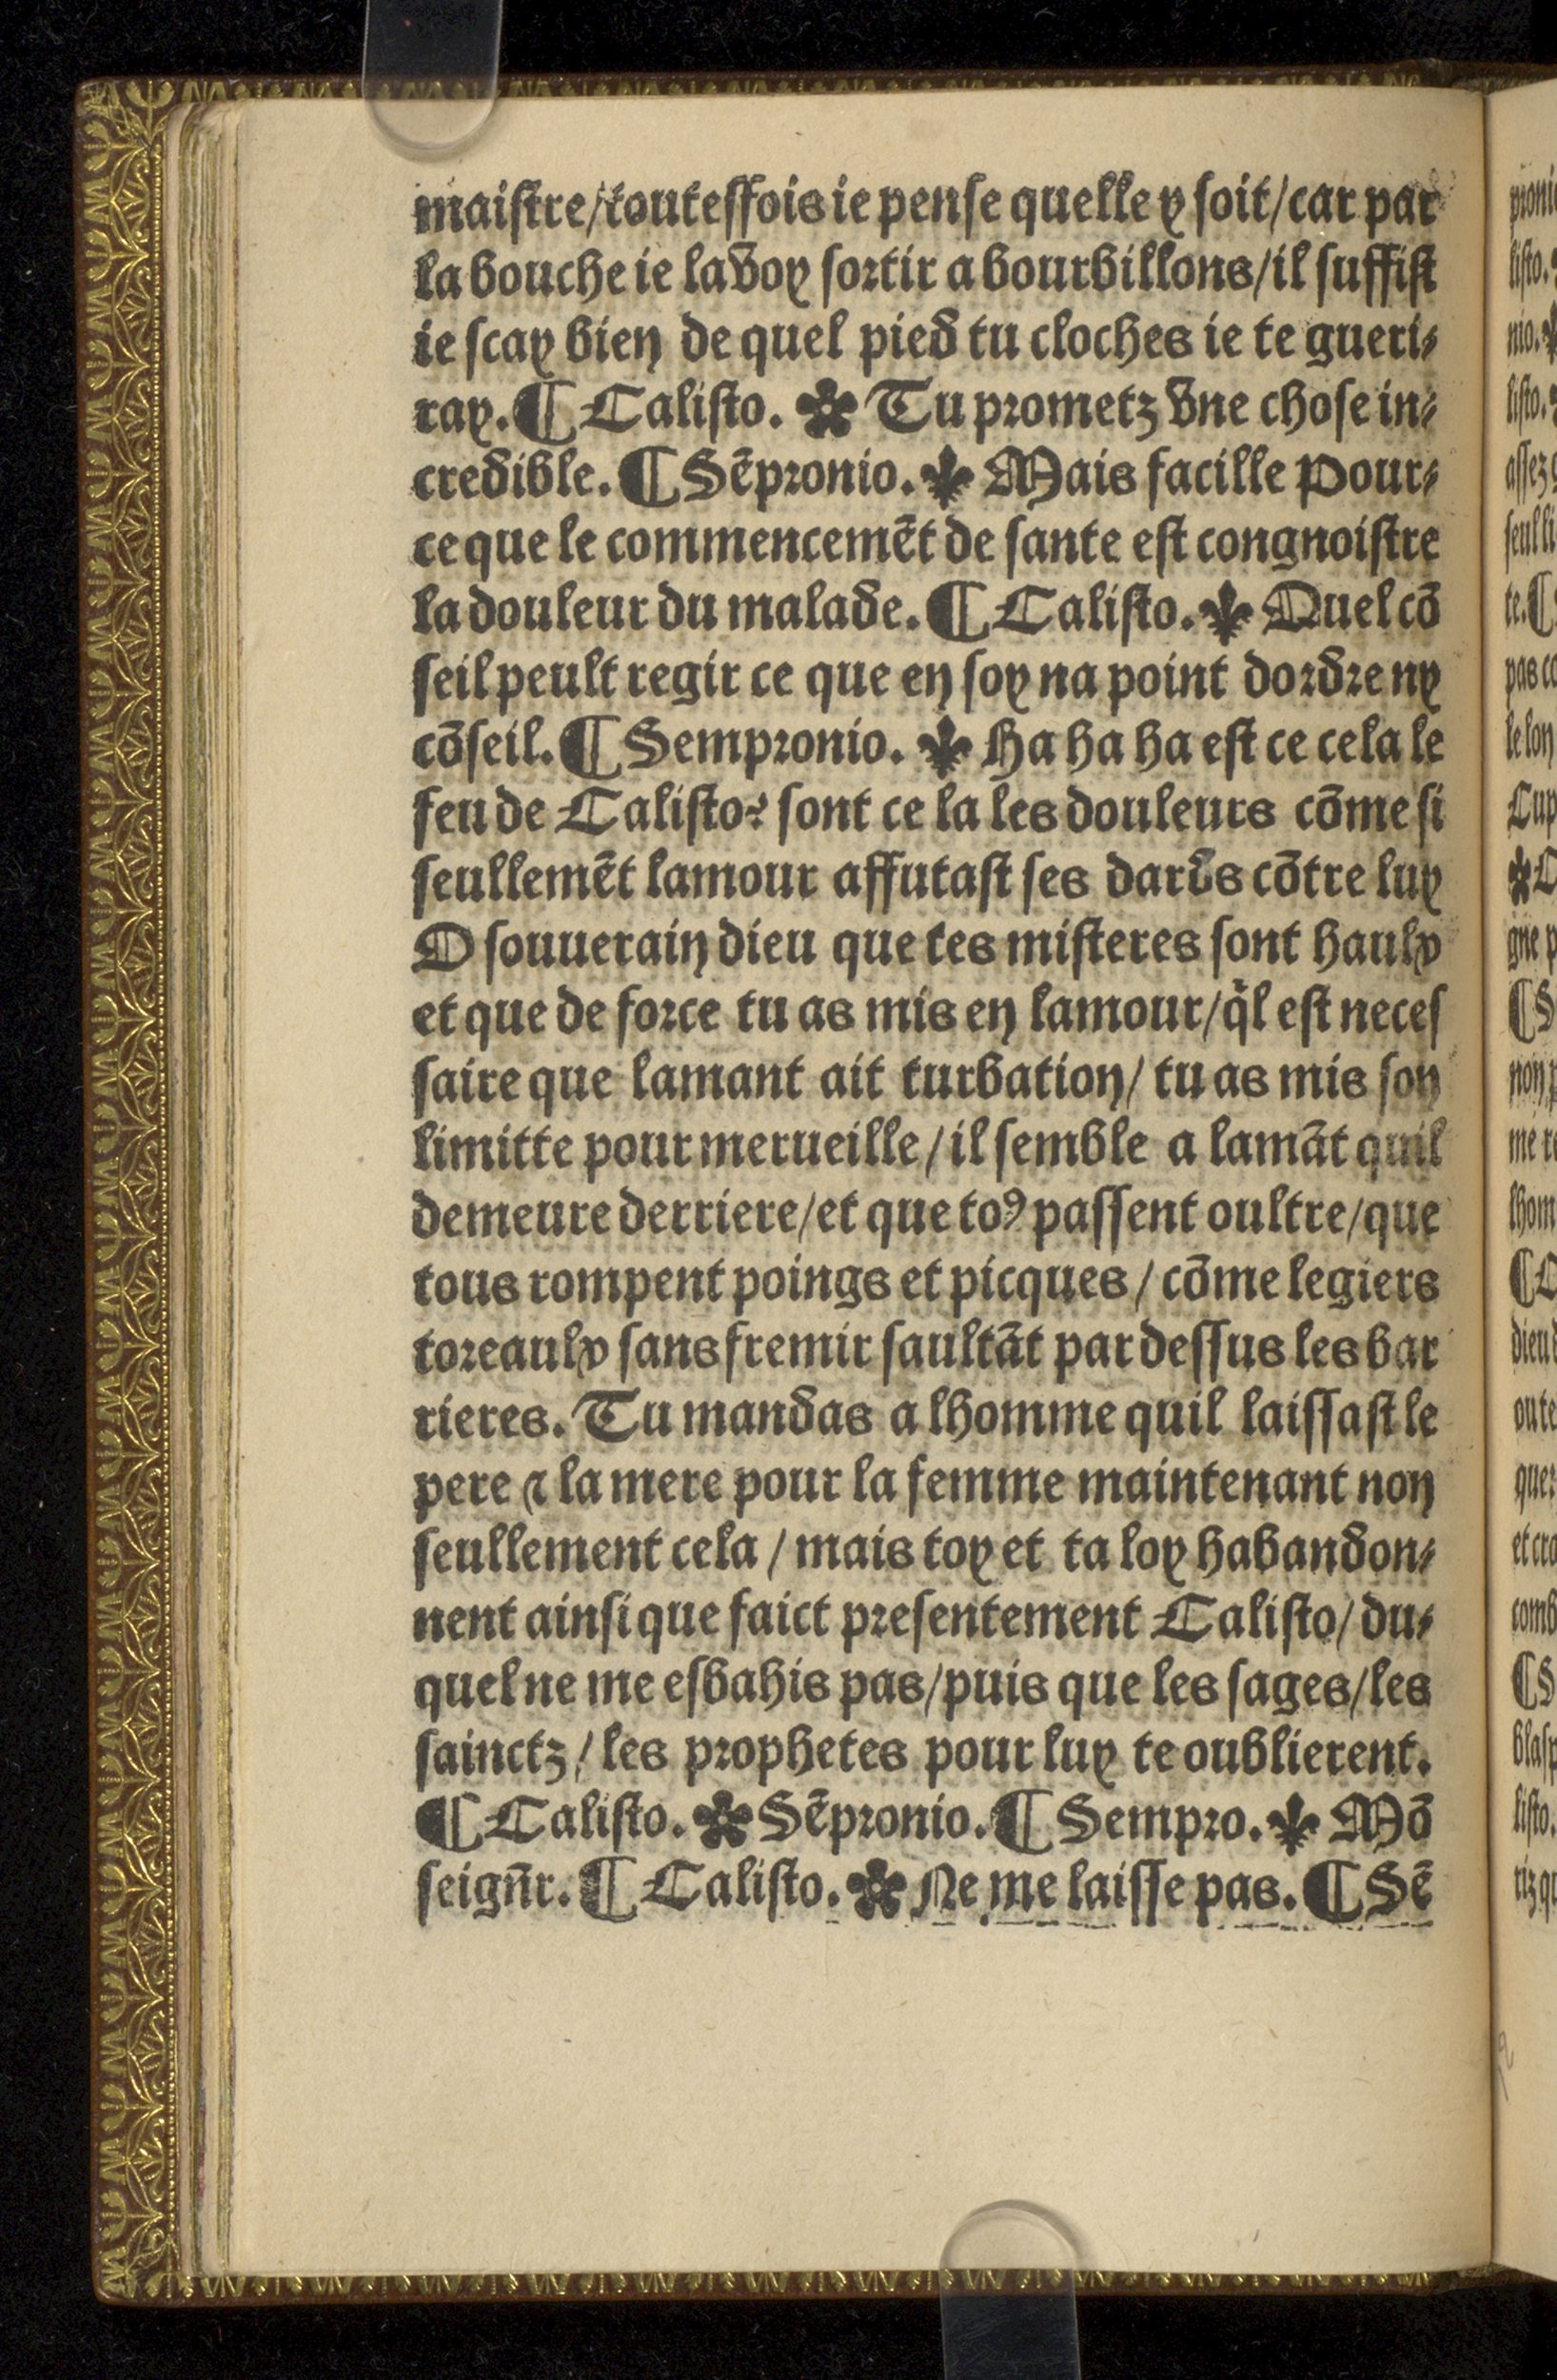 maistre/touteffois ie pense quelle y soit/car par
la bouche ie la voy sortir a bourbillons/il suffist
ie scay bien de quel pied tu cloches ie te gueri⸗
ray. ¶ Calisto. ✽ Tu prometz vne chose in⸗
credible. ¶ Sẽpronio. ⚜ Mais facille pour⸗
ce que le commencemẽt de sante est congnoistre
la douleur du malade. ¶ Calisto. ⚜ Quel cõ
seil peult regir ce que en soy na point dordre ny
cõseil. ¶ Sempronio. ⚜ Ha ha ha est ce cela le
feu de Calisto? sont ce la les douleurs cõme si
seullemẽt lamour affutast ses dards cõtre luy
O souuerain dieu que tes misteres sont haulx
et que de force tu as mis en lamour/q̃l est neces
saire que lamant ait turbation/ tu as mis son
limitte pour merueille/il semble a lamãt quil
demeure derriere/et que toꝰ passent oultre/que
tous rompent poings et picques/ cõme legiers
toreaulx sans fremir saultãt par dessus les bar
rieres. Tu mandas a lhomme quil laissast le
pere ⁊ la mere pour la femme maintenant non
seullement cela / mais toy et ta loy habandon⸗
nent ainsi que faict presentement Calisto/ du⸗
quel ne me esbahis pas/puis que les sages/les
sainctz/ les prophetes pour luy te oublierent.
¶ Calisto. ✽ Sẽpronio. ¶ Sempro. ⚜ Mõ
seigñr. ¶ Calisto. ✽ Ne me laisse pas. ¶ Sẽ